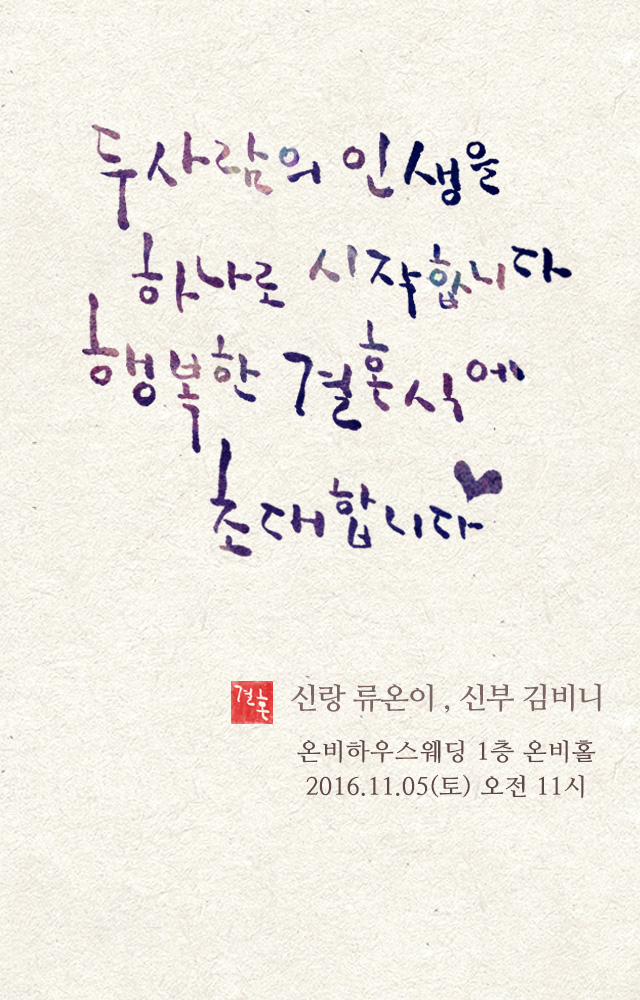 두사람의 인생을
하나로 시작합니다
행복한 결혼식에
초대합니다
결혼
신랑 류온이 , 신부 김비니
온비하우스웨딩 1층 온비홀
2016.11.05(토) 오전 11시